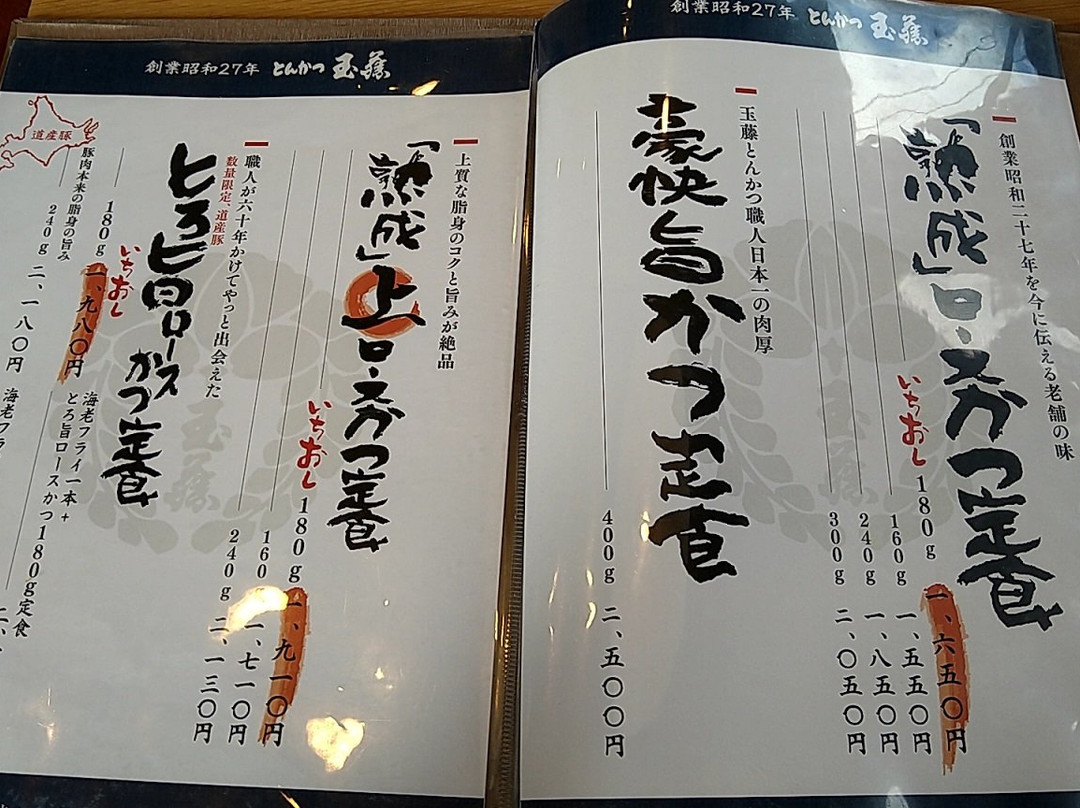 創業昭和27年 とんかつ 玉藤
創業昭和二十七年を今に伝える老舗の味
「熟成」ロースかつ定食
いちおし 180g 一、六五〇円
160g 一、五五〇円
240g 一、八五〇円
300g 二、〇五〇円
玉藤とんかつ職人日本一の肉厚
豪快旨かつ定食
400g 二、五〇〇円
創業昭和27年 とんかつ 玉藤
上質な脂身のコクと旨みが絶品
「熟成」上ロースかつ定食
いちおし 180g 一、九一〇円
160 一、七一〇円
240g 二、一三〇円
職人が六十年かけてやっと出会えた
数量限定、道産豚
とろ旨ロースかつ定食
いちおし
180g 一、九八〇円
240g 二、一八〇円
道産豚
豚肉本来の脂身の旨み
海老フライ一本+
とろ旨ロースかつ180g定食
海老フラ
玉藤
玉藤